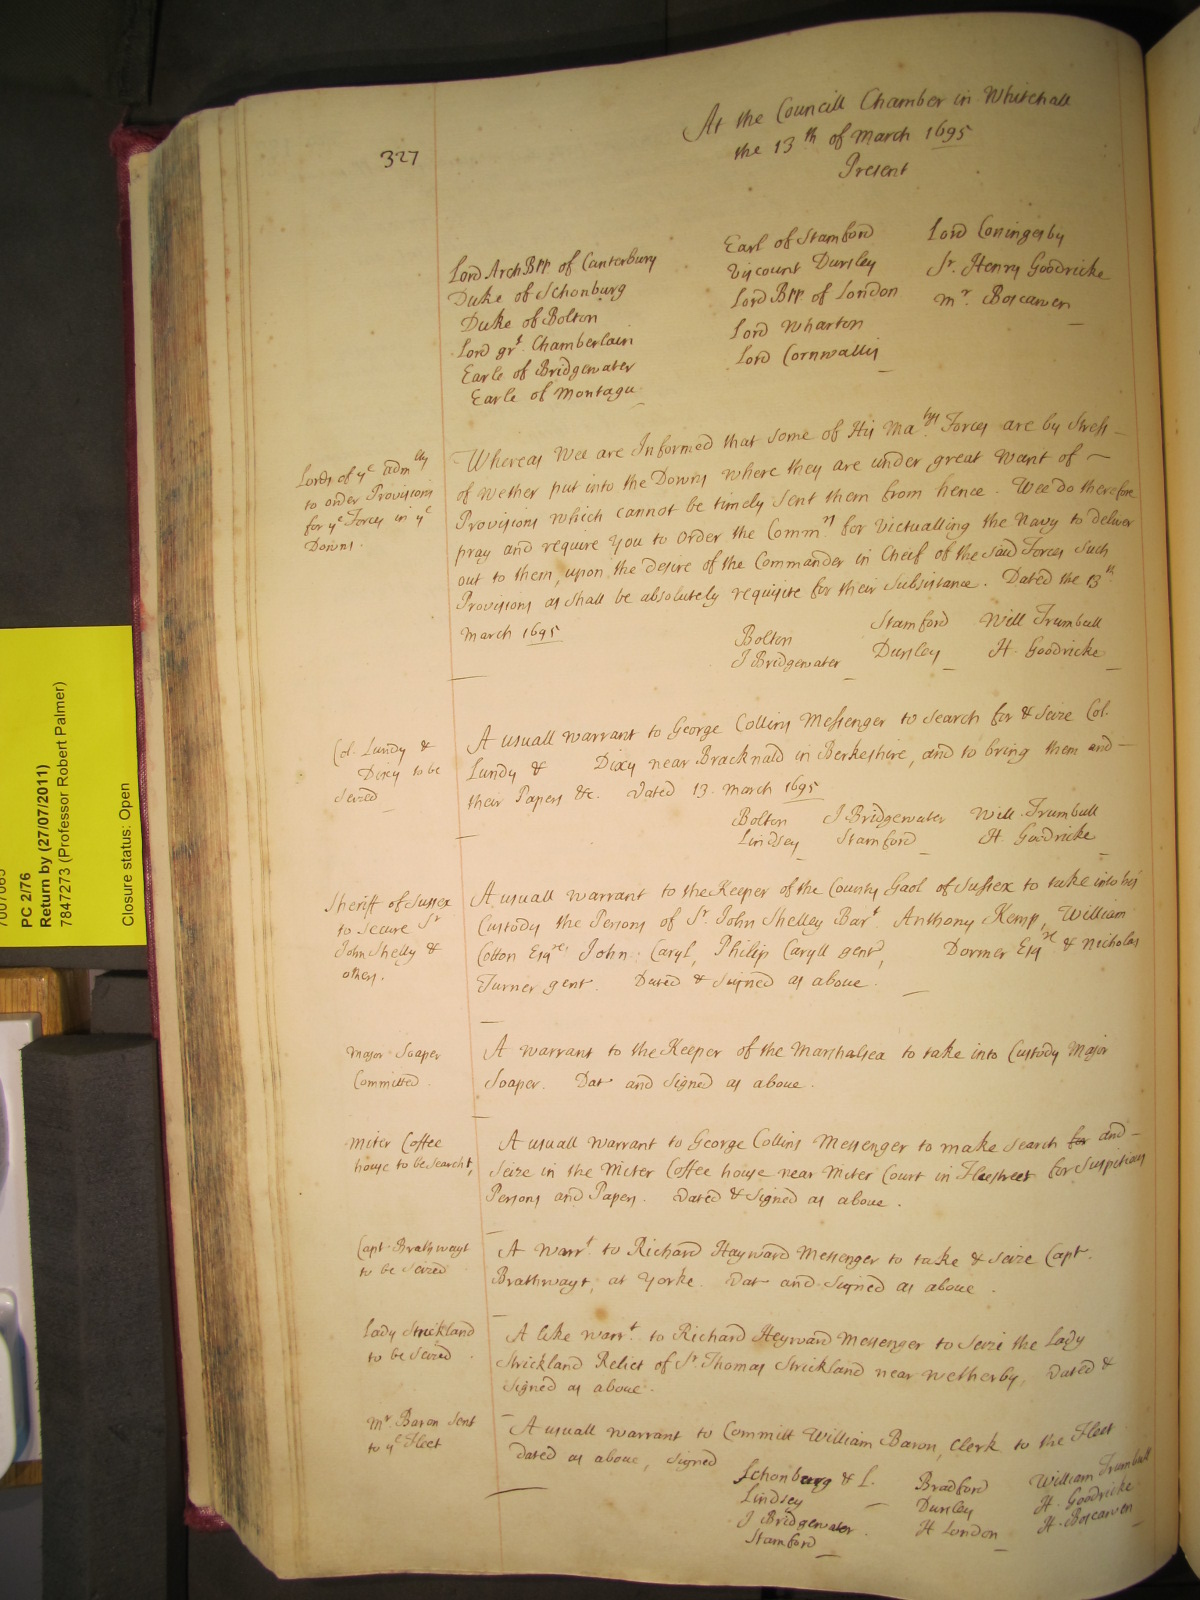 327
At the Councill Chamber in Whitehall
the 13th of March 1695
Present
Lord ArchBpp of Canterbury
Duke of Schonburg
Duke of Bolton
Lord grt Chamberlain
Earle of Bridgewater
Earle of Montagu
Earl of Stamford
Viscount Dursley
Lord Bpp of London
Lord Wharton
Lord Cornwallis
Lord Coningesby
Sr. Henry Goodricke
Mr. Boscawen
Lords of ye Admlty
to order Provisions
for ye Forces in ye
Downs.
Whereas Wee are Informed that some of His Matys Forces are by stress
of Wether put into the Downs where they are under great Want of
Provisions which cannot be timely sent them from hence. Wee do therefore
pray and require You to Order the Commrs for Victualling the Navy to deliver
out to them, upon the desire of the Commander in Cheif of the said Forces such
Provisions as shall be absolutely requisite for their Subsistance. Dated the 13th
March 1695
Bolton
J Bridgewater
Stamford
Dursley
Will Trumbull
H. Goodricke
Col. Lundy &
Dixy to be
seized
A usuall warrant to George Collins Messenger to search for & seize Col.
Lundy & Dixy near Bracknald in Berkeshire, and to bring them and
their Papers &c. Dated 13. March 1695
Bolton
Lindsey
J Bridgewater
Stamford
Will. Trumbull
H. Goodricke
Sheriff of Sussex
to secure Sr
John Shelly &
others.
A usuall warrant to the Keeper of the County Gaol of Sussex to take into his
Custody the Persons of Sr. John Shelley Bart Anthony Kemp, William
Cotton Esqre, John Caryl, Philip Caryll gent, Dormer Esqre & Nicholas
Turner gent. Dated & signed as above.
Major Soaper
Committed
A warrant to the Keeper of the Marshalsea to take into Custody Major
Soaper. Dat and Signed as above.
Miter Coffee
house to be searcht,
A usuall warrant to George Collins Messenger to make search for and
seize in the Miter Coffee house near Miter Court in Fleestreet for suspitious
Persons and Papers. Dated & Signed as above.
Capt Brathwayt
to be seized
A Warrt to Richard Hayward Messenger to take & seize Capt.
Brathwayt, at Yorke. Dat and signed as above.
Lady Strickland
to be seized
A like warrt. to Richard Heyward Messenger to seize the Lady
Strickland Relict of Sr Thomas Strickland near Wetherby, Dated &
signed as above.
Mr. Baron sent
to ye Fleet
A usuall warrant to Committ William Baron, Clerk to the Fleet
Dated as above, signed
Schonburg & L.
Lindsey
J Bridgewater
Stamford
Bradford
Dursley
H London
William Trumbull
H. Goodricke
H. Boscawen
PC 2/76
Return by (27/07/2011)
7847273 (Professor Robert Palmer)
Closure status: Open